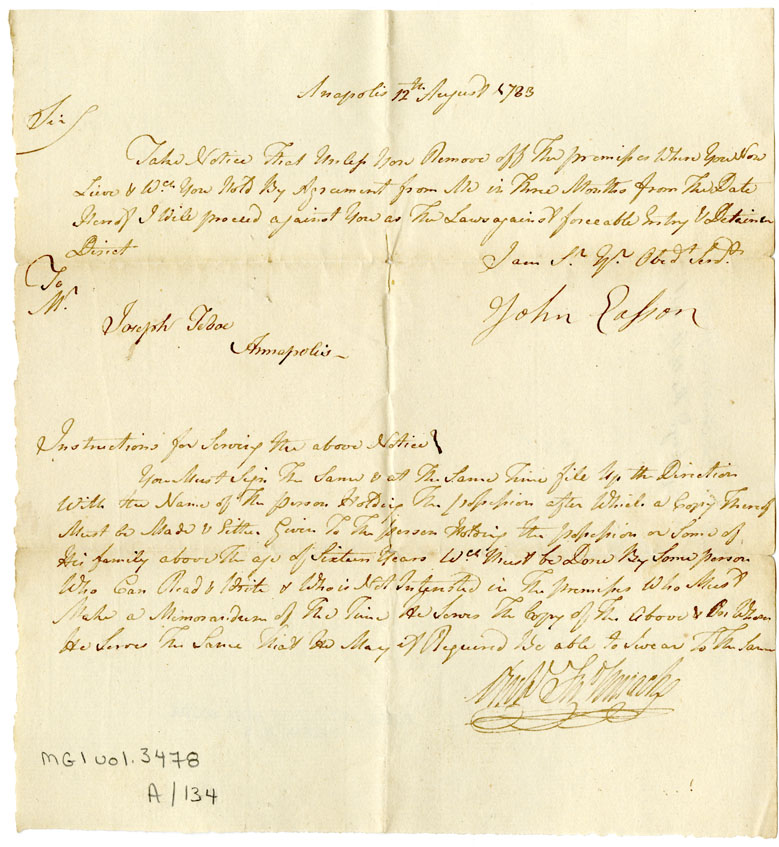 Anapolis 12th August 1783
Sir
Take Notice That Unless You Remove off The premisses Where You Now
Lieve & Wch You Hold By Agrament from Me in Three Months from The Date
Hereof I Will proceed against You as The Laws against forceable Entry & Detainer
Direct
I am Sr. Yr. Obedt Servt.
To
Mr.
John Easson
Joseph
Annapolis
Instructions for Serving the above Notice
You Must Sign The Same & at The Same Time file Up the Direction
With the Name of The person Holding The possession after Which a Copy Thereof
Must be Made & Either Given To The person Holding the possession or Some of
His family above The age of Sixteen Years Wch Must be Done By Some person
Who Can Read & Write & Who is Not Intersted in The premisses Who Must
Make a Memorandum of The Time He Serves The Copy of The Above & On Whom
He Serves The Same That He May if Required Be able to Swear To The Same
MG1 vol. 3478
A/134